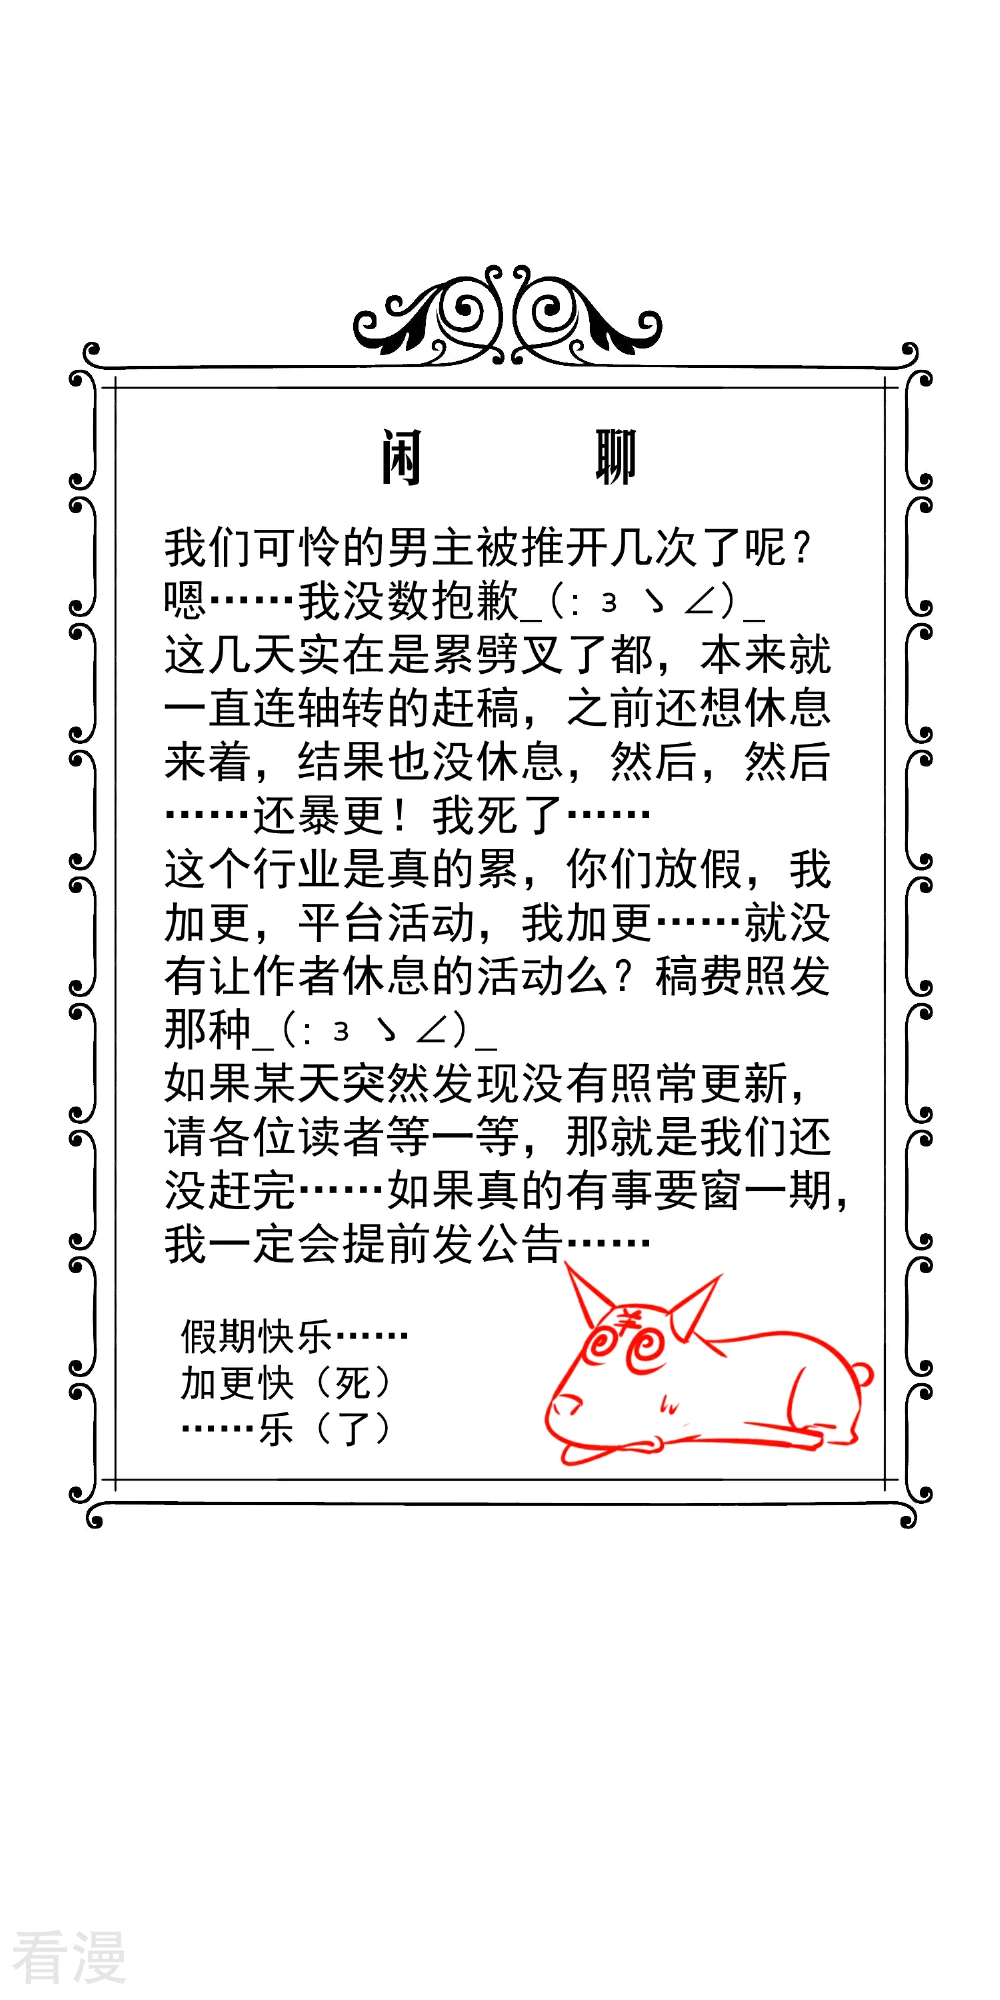 闲 聊
我们可怜的男主被推开几次了呢？
嗯……我没数抱歉_(:з ゝ∠)_
这几天实在是累劈叉了都，本来就
一直连轴转的赶稿，之前还想休息
来着，结果也没休息，然后，然后
……还暴更！我死了……
这个行业是真的累，你们放假，我
加更，平台活动，我加更……就没
有让作者休息的活动么？稿费照发
那种_(:з ゝ∠)_
如果某天突然发现没有照常更新，
请各位读者等一等，那就是我们还
没赶完……如果真的有事要窗一期，
我一定会提前发公告……
假期快乐……
加更快（死）
……乐（了）
看漫